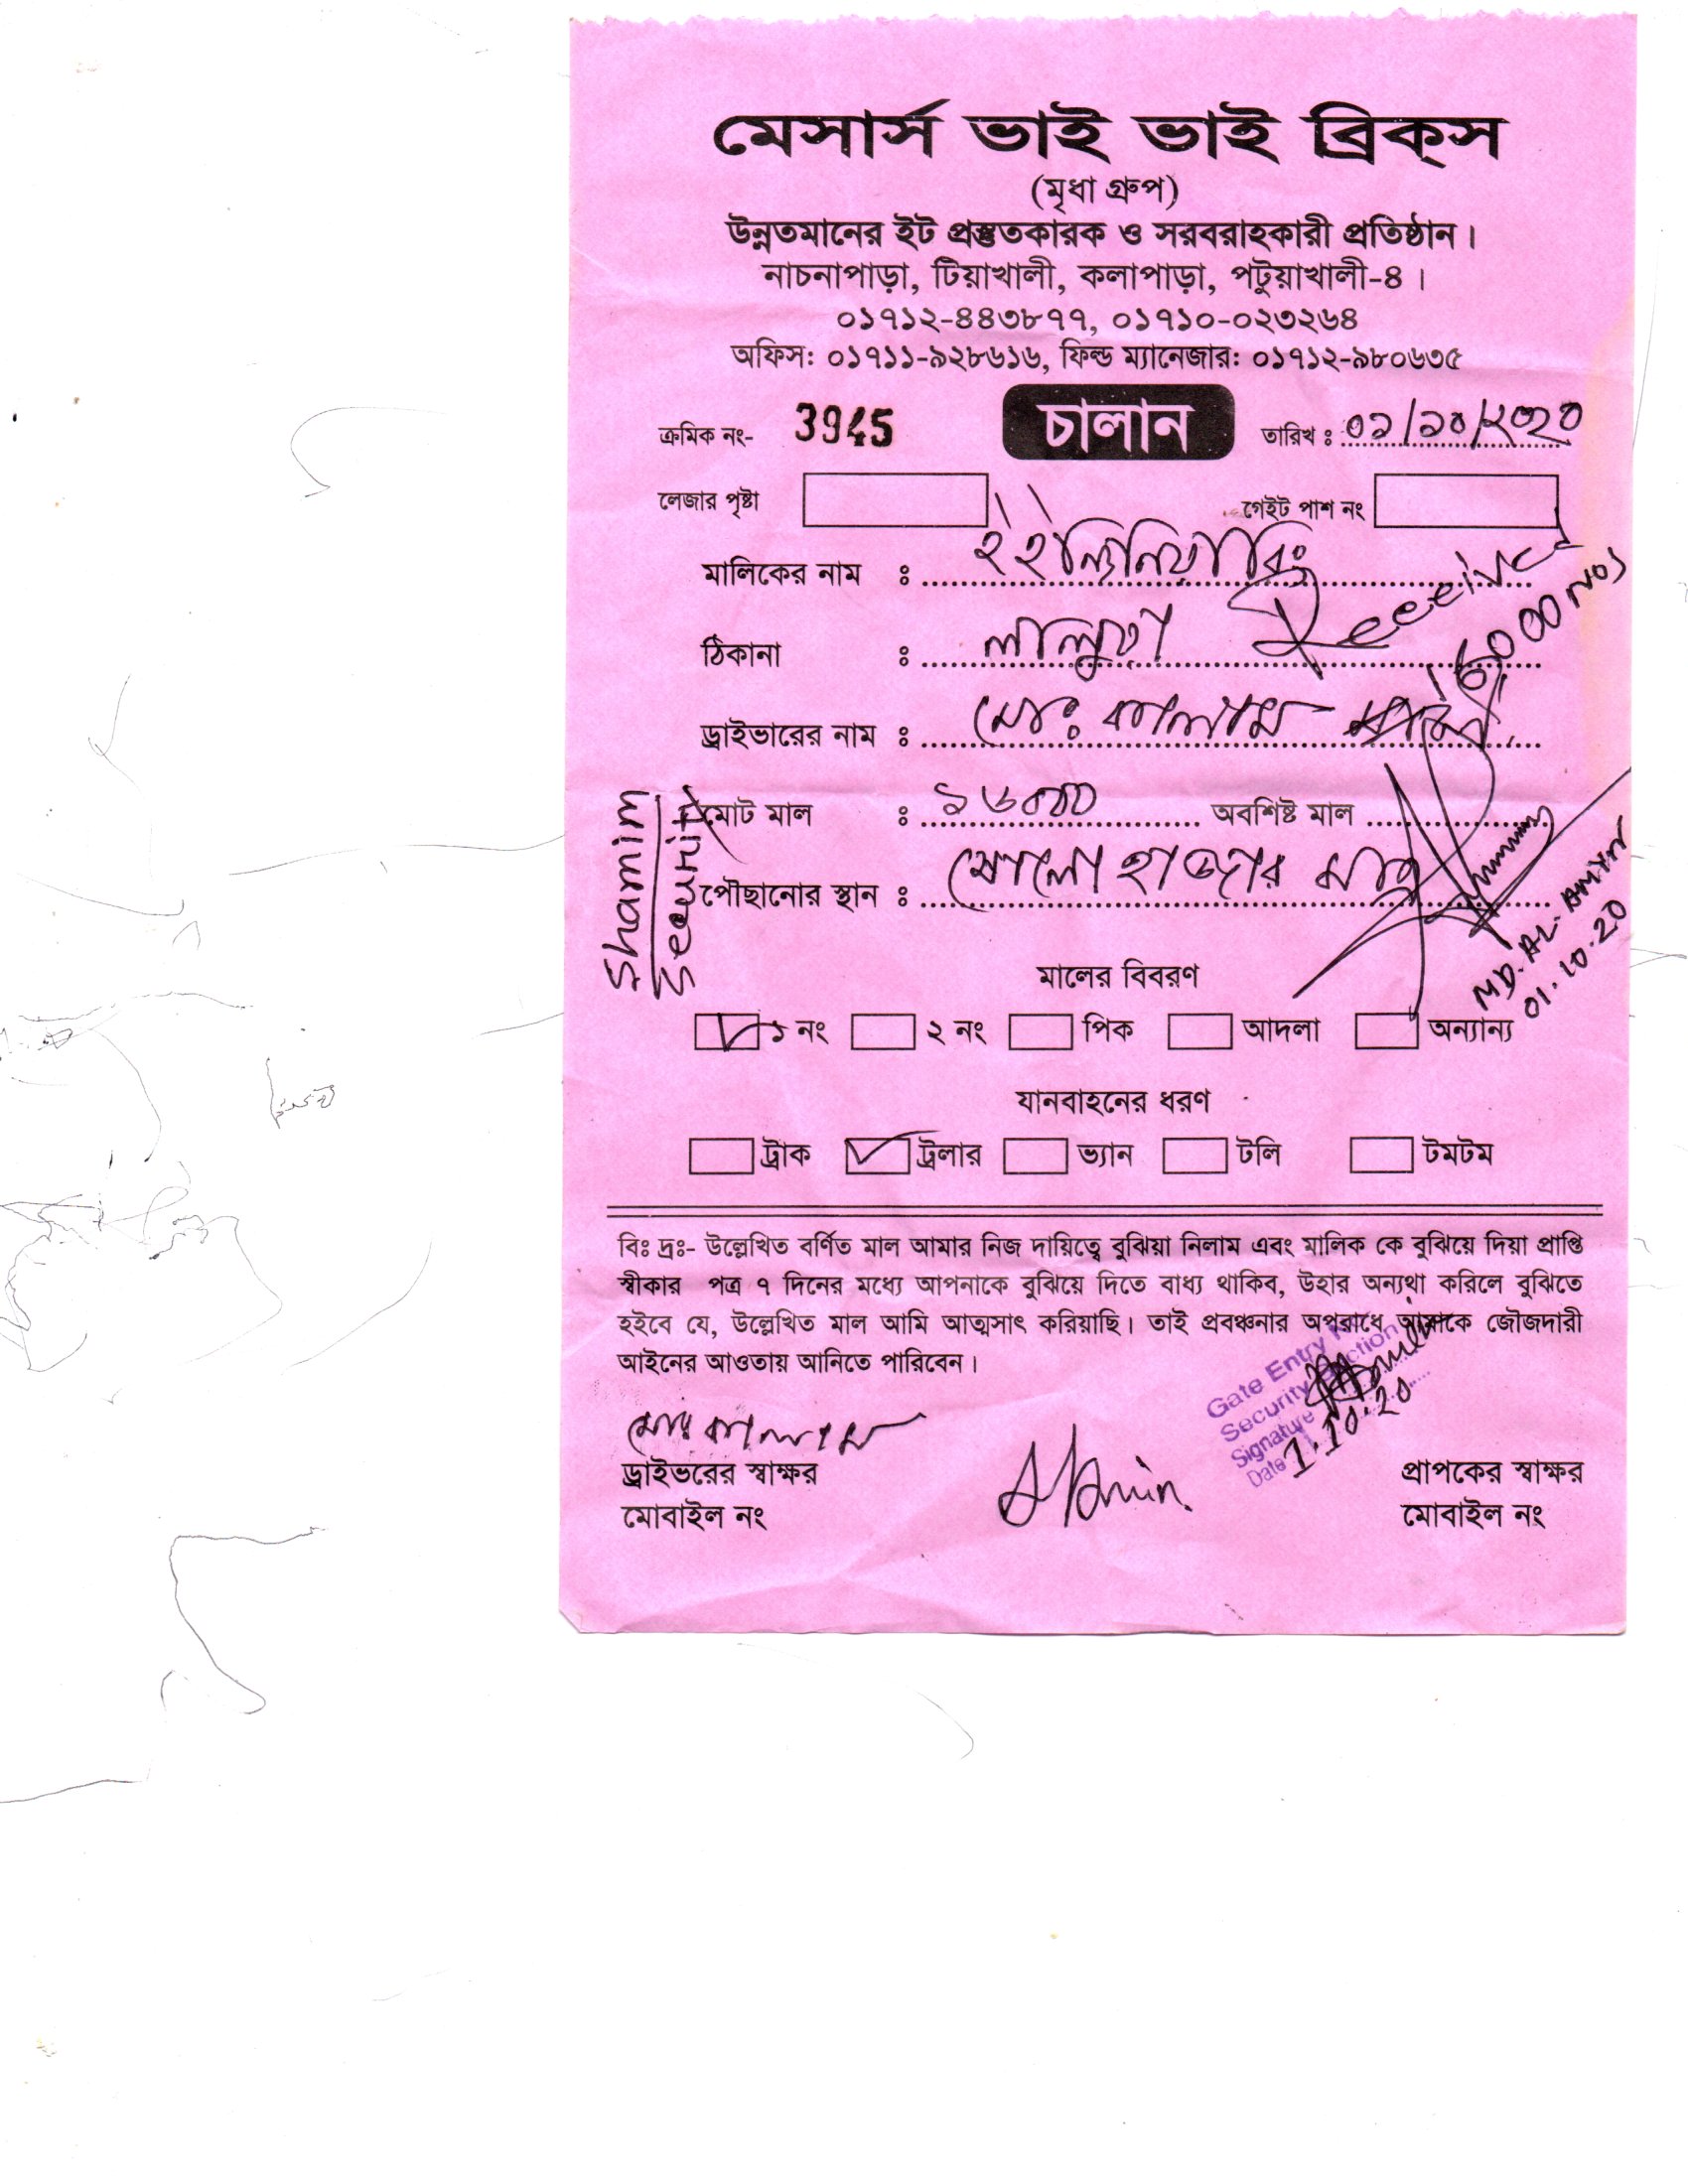 মেসার্স ভাই ভাই ব্রিক্‌স
(মৃধা গ্রুপ)
উন্নতমানের ইট প্রস্তুতকারক ও সরবরাহকারী প্রতিষ্ঠান।
নাচনাপাড়া, টিয়াখালী, কলাপাড়া, পটুয়াখালী-৪।
০১৭১২-৪৪৩৮৭৭, ০১৭১০-০২৩২৬৪
অফিস: ০১৭১১-৯২৮৬১৬, ফিল্ড ম্যানেজার: ০১৭১২-৯৮০৬৩৫
ক্রমিক নং- 3945 চালান তারিখ ঃ ০১/১০/২০২০
লেজার পৃষ্টা গেইট পাশ নং
মালিকের নাম ঃ
Received
16000 Nos
ঠিকানা ঃ লালুয়া
ড্রাইভারের নাম ঃ মোঃ কালাম
মোট মাল ঃ ১৬০০০ অবশিষ্ট মাল
পৌছানোর স্থান ঃ ষোলো হাজার মাত্র
Shamim
Security
MD. AL-AMIN
01.10.20
মালের বিবরণ
১ নং ২ নং পিক আদলা অন্যান্য
যানবাহনের ধরণ
ট্রাক ট্রলার ভ্যান টলি টমটম
বিঃ দ্রঃ- উল্লেখিত বর্ণিত মাল আমার নিজ দায়িত্বে বুঝিয়া নিলাম এবং মালিক কে বুঝিয়ে দিয়া প্রাপ্তি
স্বীকার পত্র ৭ দিনের মধ্যে আপনাকে বুঝিয়ে দিতে বাধ্য থাকিব, উহার অন্যথা করিলে বুঝিতে
হইবে যে, উল্লেখিত মাল আমি আত্মসাৎ করিয়াছি। তাই প্রবঞ্চনার অপরাধে আমাকে জৌজদারী
আইনের আওতায় আনিতে পারিবেন।
Gate Entry
Security Section
Signature
Date 1.10.20
মোঃ কালাম
ড্রাইভরের স্বাক্ষর প্রাপকের স্বাক্ষর
মোবাইল নং মোবাইল নং